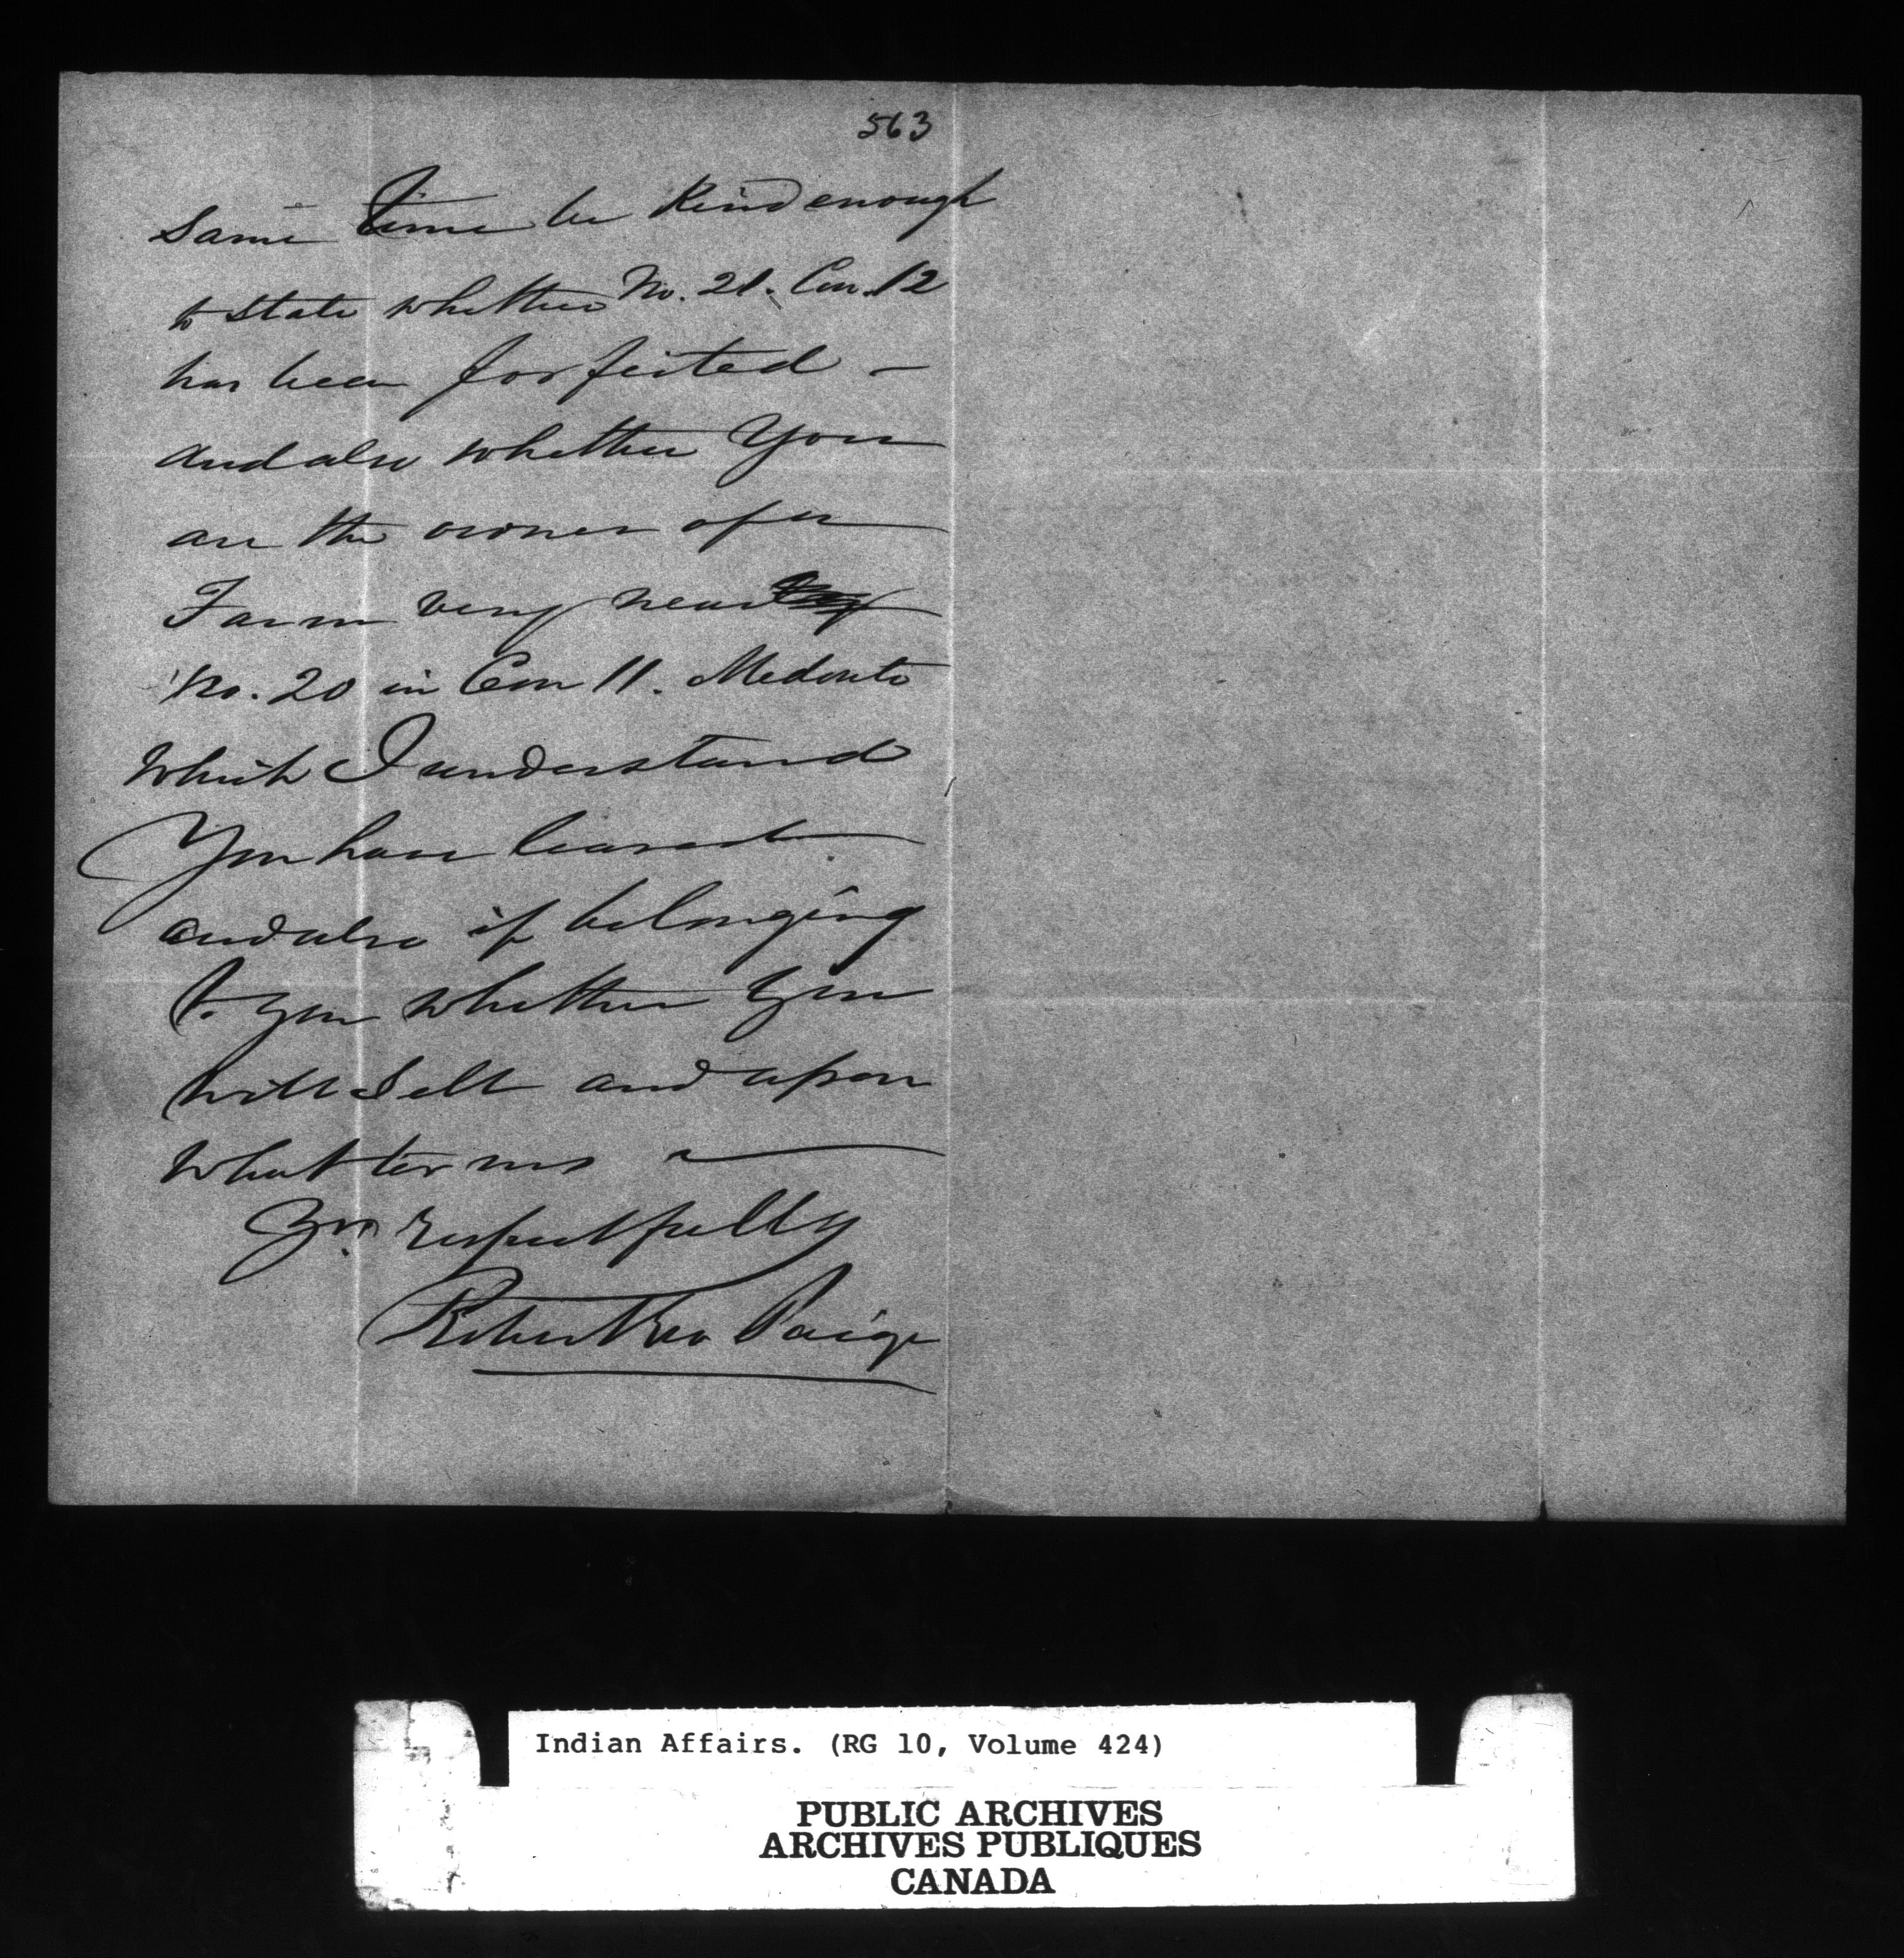 563
same time be kind enough
to state whether No. 21. Con. 12
has been forfeited –
and also whether you
are the owner of a
Farm very near
No. 20 in Con 11. Medonte
Which I understand
You have leased
and also if belonging
to you whether you
will sell and upon
what terms
Yrs respectfully
Robert Paige
Indian Affairs. (RG 10, Volume 424)
PUBLIC ARCHIVES
ARCHIVES PUBLIQUES
CANADA